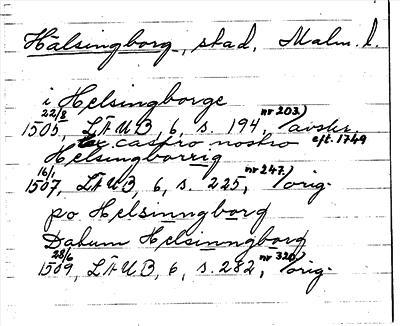 Hälsingborg, stad, Malm. l.
i Helsingborge
22/8 1505, LÄUB, 6, s. 194, nr 203) avskr. eft. 1749
ex castro nostro
Helsingborrig
16/1 1507, LÄUB, 6, s. 225, nr 247) orig.
po Helsinngborg
Datum Helsinngborg
28/6 1509, LÄUB, 6, s. 282, nr 320) orig.